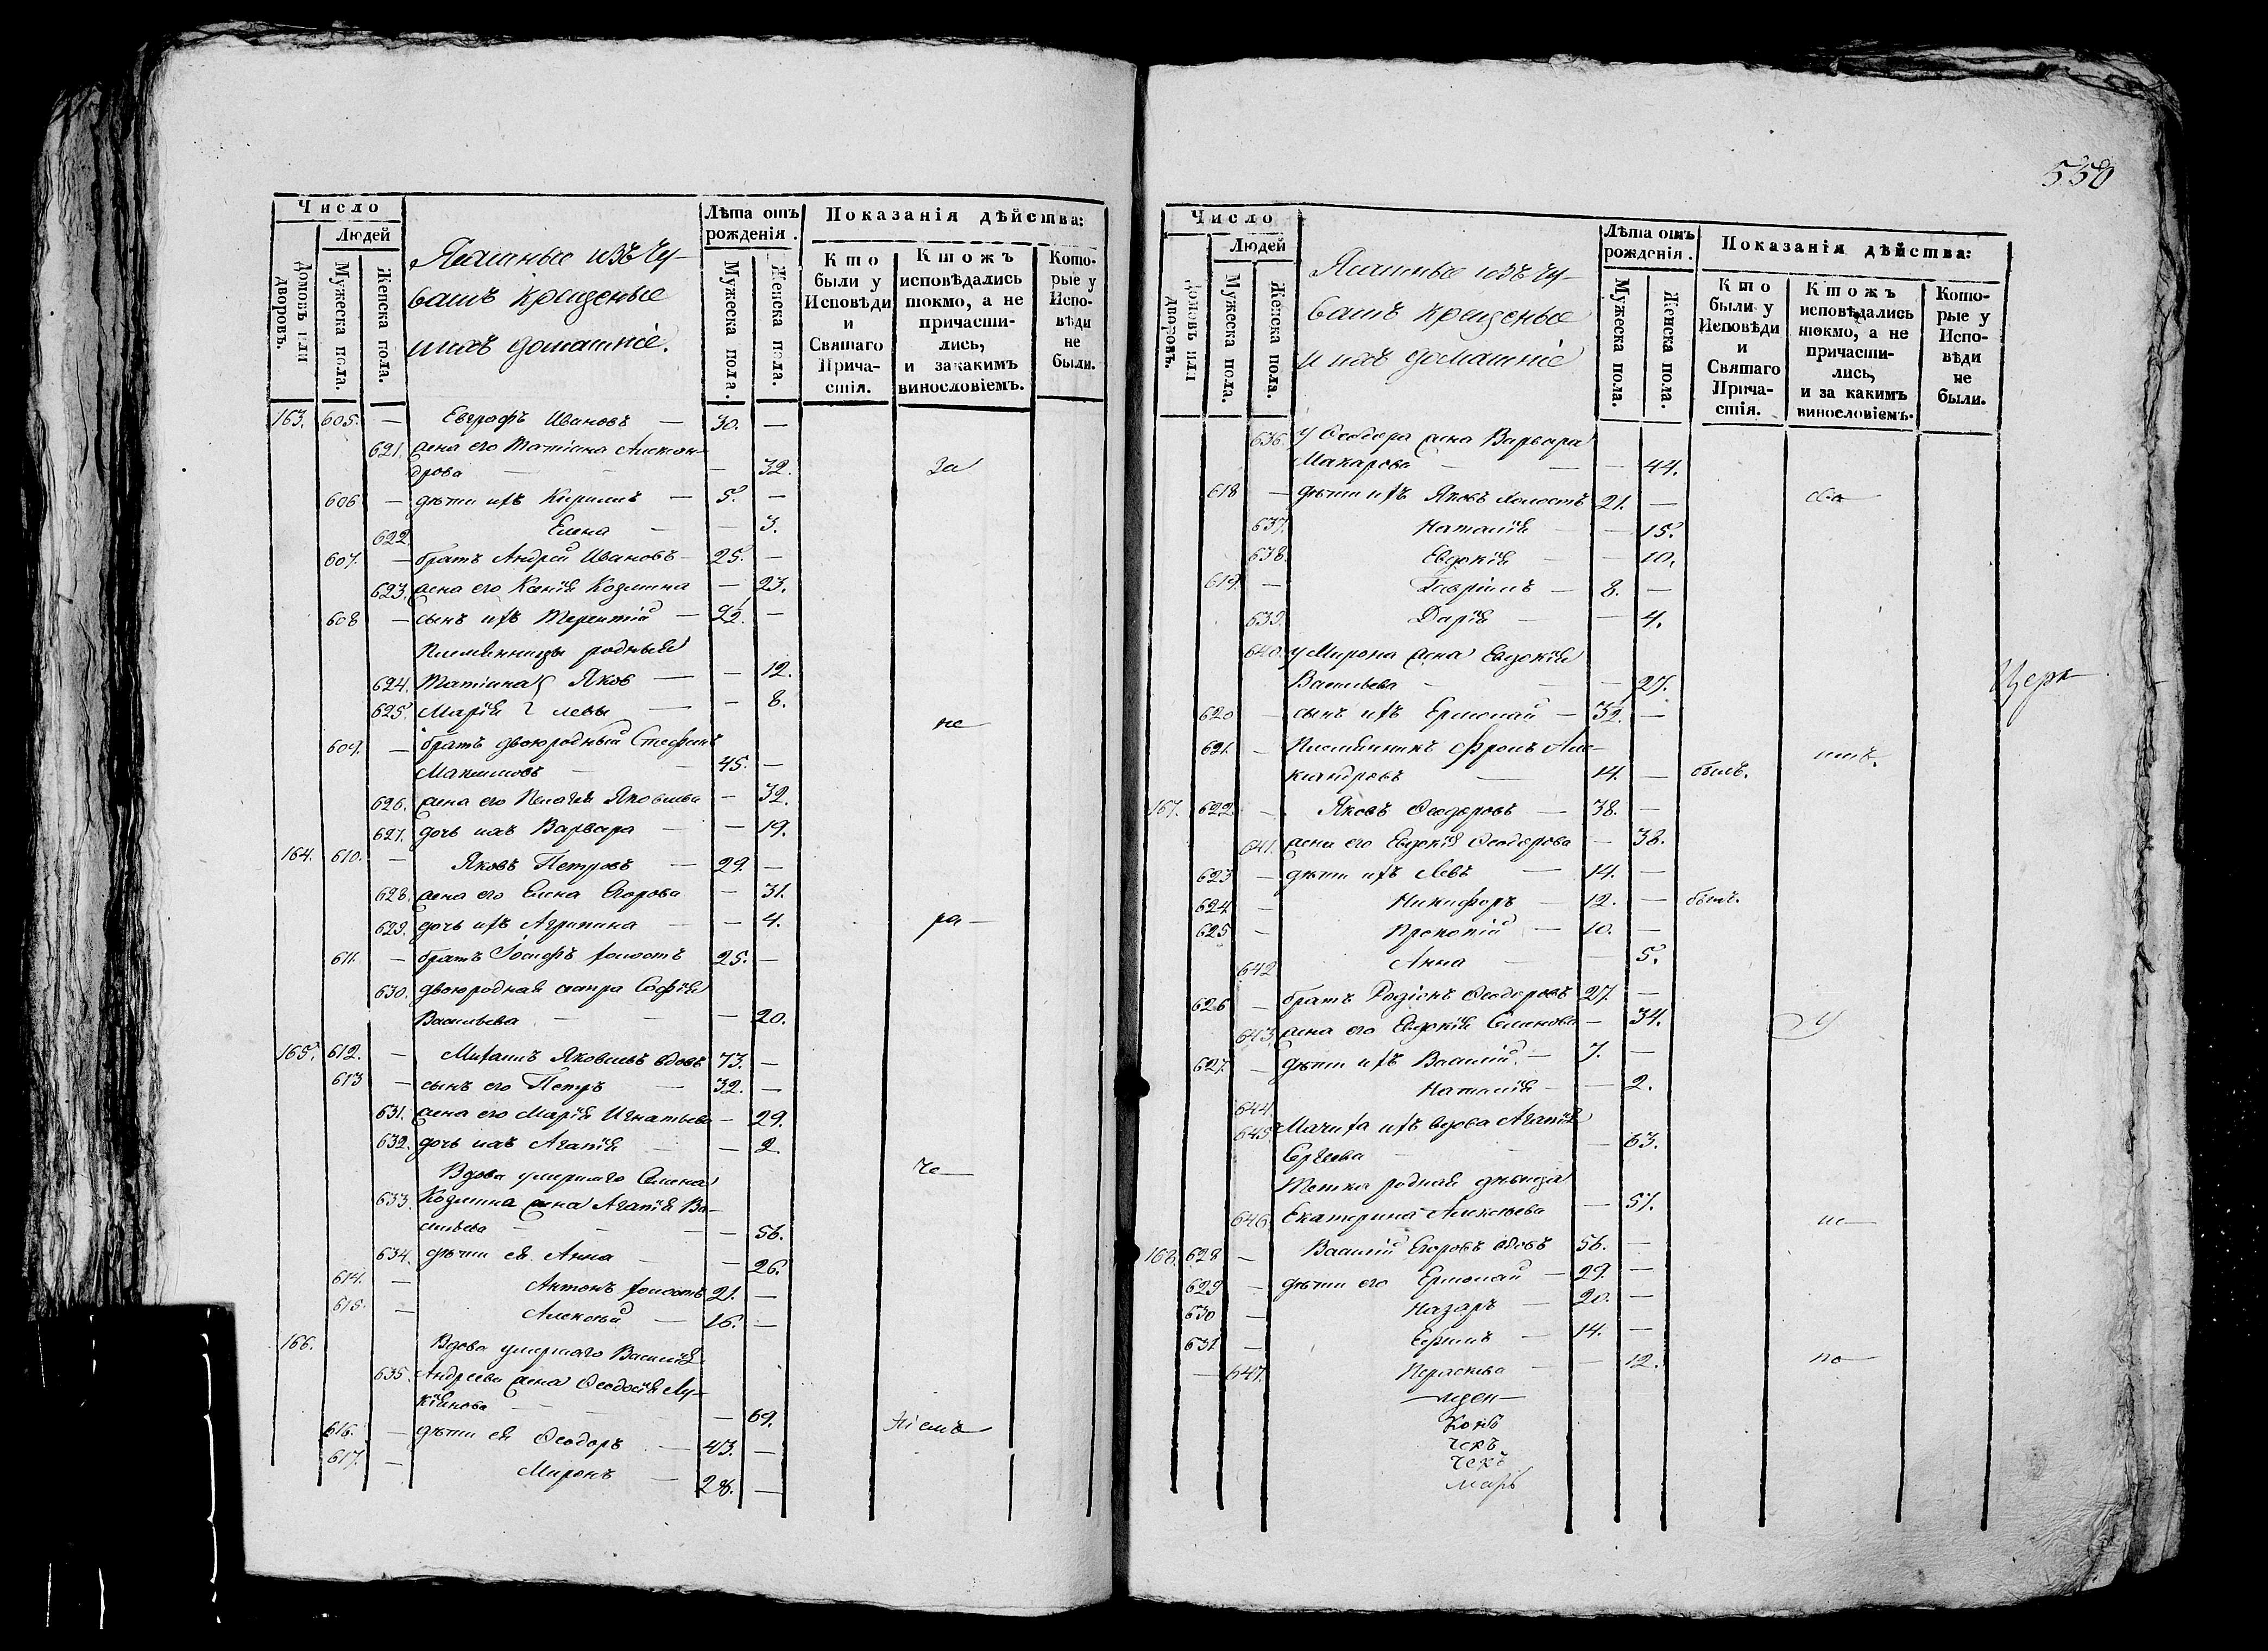 550
Число
Людей
Домовъ или дворовъ.
Мужеска пола.
Женска пола.
Ясашные изъ Чу-
вашъ крещеные
и ихъ домашніе.
Лѣта отъ рожденія.
Мужеска пола.
Женска пола.
Показанія дѣйства:
Кто были у Исповѣди и Святаго Прича-стія.
Ктожъ исповѣдались токмо, а не причасти-лись, и за какимъ винословіемъ.
Кото-рые у Испо-вѣди не были.
163. 605. — Евграфъ Ивановъ — 30. —
621. жена его Татіана Александрова — 32. За
606 — дѣти ихъ Кириллъ — 5. —
622 Елена — — 3.
607. — братъ Андрей Ивановъ — 25. —
623. жена его Ксенія Козмина — 23.
608 — сынъ ихъ Терентій — —
Племянницы родныя
624. Татіана Яков — — 12.
625. Марія левы — — 8.
не
609. — братъ двоюродный Стефанъ
Максимовъ — 45. —
626. жена его Пелагія Яковлева — 32.
627. дочь ихъ Варвара — — 19.
164. 610. — Яковъ Петровъ — 29. —
628. жена его Елена Егорова — 31.
629. дочь ихъ Агрипина — — 4. ра—
611. — братъ Іосифъ холостъ 25. —
630. двоюродная сестра Софія
Васильева — — — 20.
165. 612. — Михаилъ Яковлевъ вдовъ 73. —
613 — сынъ его Петръ — 32. —
631. жена его Марія Игнатьева — 29.
632. дочь ихъ Агапія — — 2.
че—
Вдова умершаго Семена
633. Козмина жена Агапія Ва-
сильева — — — 56.
634. дѣти ея Анна — — 26.
614. — Антонъ холостъ 21. —
615. — Алексѣй — 16. —
166. Вдова умершаго Василія
635. Андреева жена Ѳеодосія Лу-
кіянова — — — 69.
616. — дѣти ея Ѳеодоръ — 43. — ніемъ
617. — Миронъ — 28. —
Число
Людей
Домовъ или дворовъ.
Мужеска пола.
Женска пола.
Ясашные изъ Чу-
вашъ крещеные
и ихъ домашніе
Лѣта отъ рожденія.
Мужеска пола.
Женска пола.
Показанія дѣйства:
Кто были у Исповѣди и Святаго Прича-стія.
Ктожъ исповѣдались токмо, а не причасти-лись, и за какимъ винословіемъ.
Кото-рые у Испо-вѣди не были.
636. у Ѳеодора жена Варвара
Макарова — — — 44.
618 — дѣти ихъ Яковъ холостъ 21. — сво—
637. Наталія — — 15.
638. Евдокія — — 10.
619. — Гавріилъ — 8. —
639. Дарія — — 4.
640. у Мирона жена Евдокія
Васильева — — — 27.
Церк—
620 — сынъ ихъ Ермолай — —
621. — Племянникъ Фролъ Але-
ксандровъ — 14. — былъ. имъ.
167. 622 — Яковъ Ѳеодоровъ — 38. —
641. жена его Евдокія Ѳеодорова — 38.
623 — дѣти ихъ Левъ — 14. —
624 — Никифоръ — 12. — былъ.
625 — Прокопій — 10. —
642 Анна — — 5.
626 — братъ Родіонъ Ѳеодоровъ 27. —
643. жена его Евдокія Семенова — 34. у
627. — дѣти ихъ Василій — 7. —
644. Наталія — — 2.
645. Мачиха ихъ вдова Агапія
Сергеева — — — 63.
Тетка родная дѣвица
646. Екатерина Алексѣева — 57.
не—
168. 628 — Василій Егоровъ вдовъ 56. —
629 — дѣти его Ермолай — 29. —
630 — Назаръ — 20. —
631 — Ефимъ — 14. —
— 647. Параскева — — 12. по—
Конъ
чекъ
чекъ
Марь